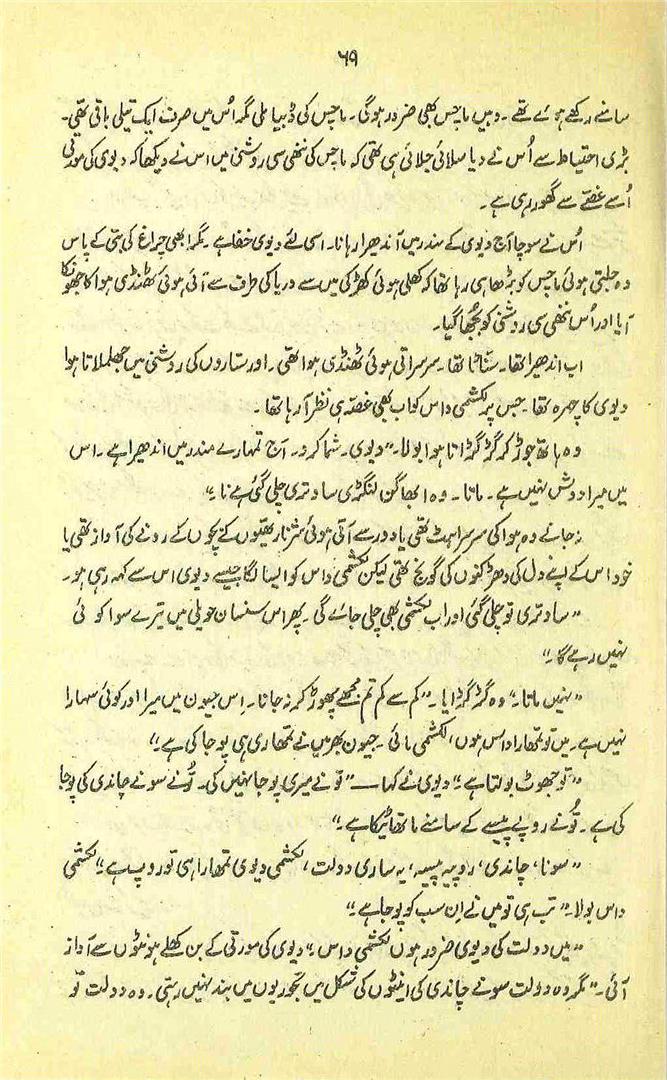 ۶۹
سامنے رکھے ہوئے تھے۔ وہیں ماچس بھی ضرور ہوگی۔ ماچس کی ڈبیا ملی مگر اُس میں صرف ایک تیلی باقی تھی۔
بڑی احتیاط سے اُس نے دیا سلائی جلائی ہی تھی کہ ماچس کی ننھی سی روشنی میں اس نے دیکھا کہ دیوی کی مورتی
اُسے غصّے سے گھور رہی ہے۔
اُس نے سوچا آج دیوی کے مندر میں اندھیرا رہا نا۔ اسی لئے دیوی خفا ہے۔ مگر ابھی چراغ کی بتی کے پاس
وہ جلتی ہوئی ماچس کو بڑھا ہی رہا تھا کہ کھلی ہوئی کھڑکی میں سے دریا کی طرف سے آئی ہوئی ٹھنڈی ہوا کا جھونکا
آیا اور اُس ننھی سی روشنی کو بُجھا گیا۔
اب اندھیرا تھا۔ سنّاٹا تھا۔ سرسراتی ہوئی ٹھنڈی ہوا تھی۔ اور ستاروں کی روشنی میں جھلملاتا ہوا
دیوی کا چہرہ تھا۔ جس پر لکشمی داس کو اب بھی غصّہ ہی نظر آرہا تھا۔
وہ ہاتھ جوڑ کر گڑگڑاتا ہوا بولا۔ ”دیوی۔ شما کرو۔ آج تمہارے مندر میں اندھیرا ہے۔ اس
میں میرا دوش نہیں ہے۔ ماتا۔ وہ ابھاگن لنگڑی ساوتری چلی گئی ہے نا۔“
نہ جانے وہ ہوا کی سرسراہٹ تھی یا دور سے آتی ہوئی شرنارتھیوں کے بچوں کے رونے کی آواز تھی یا
خود اس کے اپنے دل کی دھڑکنوں کی گونج تھی لیکن لکشمی داس کو ایسا لگا جیسے دیوی اس سے کہہ رہی ہو۔
”ساوتری تو چلی گئی اور اب لکشمی بھی چلی جائے گی۔ پھر اس سنسان حویلی میں تیرے سوا کوئی
نہیں رہے گا۔“
”نہیں ماتا۔“ وہ گڑگڑایا۔ ”کم سے کم تم مجھے چھوڑ کر نہ جانا۔ اِس جیون میں میرا اور کوئی سہارا
نہیں ہے۔ میں تو تمھارا داس ہوں، لکشمی مائی۔ جیون بھر میں نے تمھاری ہی پوجا کی ہے۔“
”تو جھوٹ بولتا ہے۔“ دیوی نے کہا — ”تو نے میری پوجا نہیں کی۔ تُو نے سونے چاندی کی پوجا
کی ہے۔ تُو نے روپے پیسے کے سامنے ماتھا ٹیکا ہے۔“
”سونا، چاندی، روپیہ پیسہ، یہ ساری دولت، لکشمی دیوی تمھارا ہی تو روپ ہے۔“ لکشمی
داس بولا۔ ”تب ہی تو میں نے اِن سب کو پوجا ہے۔“
”میں دولت کی دیوی ضرور ہوں لکشمی داس۔“ دیوی کی مورتی کے بن کھلے ہونٹوں سے آواز
آئی۔ ”مگر وہ دولت سونے چاندی کی اینٹوں کی شکل میں تجوریوں میں بند نہیں رہتی۔ وہ دولت تو